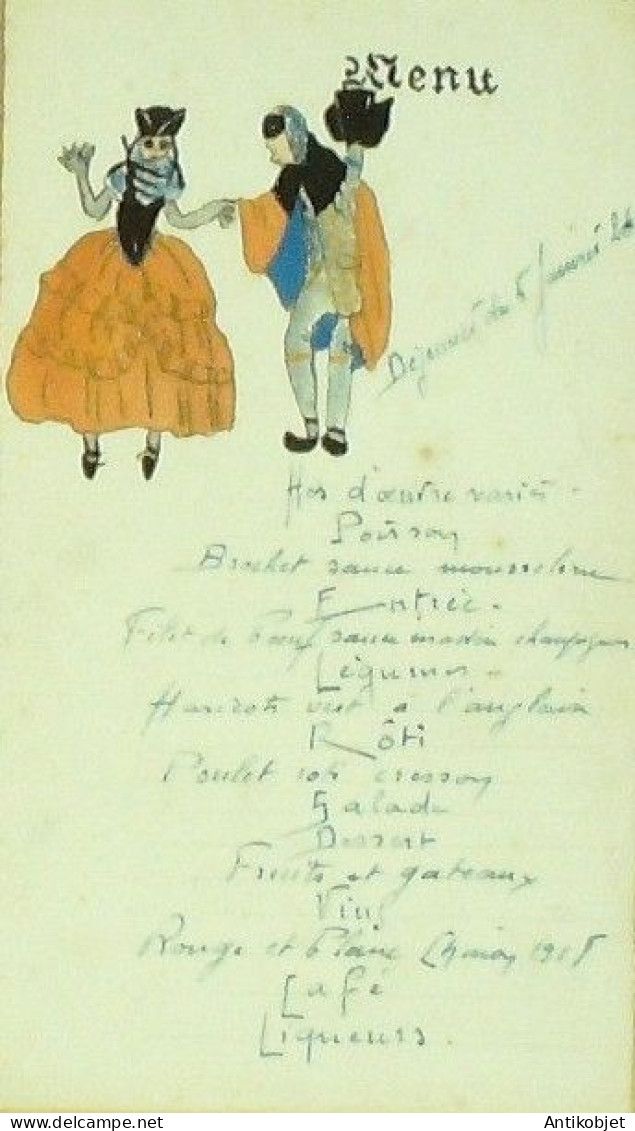 Menu
Déjeuner du 5 Janvier 26
Hors d'œuvre variés -
Poisson
Brochet sauce mousseline
Entrée -
Filet de Bœuf sauce madère champignons
Légumes -
Haricots vert à l'anglaise
Rôti
Poulet roti cresson
Salade
Dessert
Fruits et gateaux
Vins
Rouge et Blanc Chinon
Café
Liqueurs.
Antikobjet